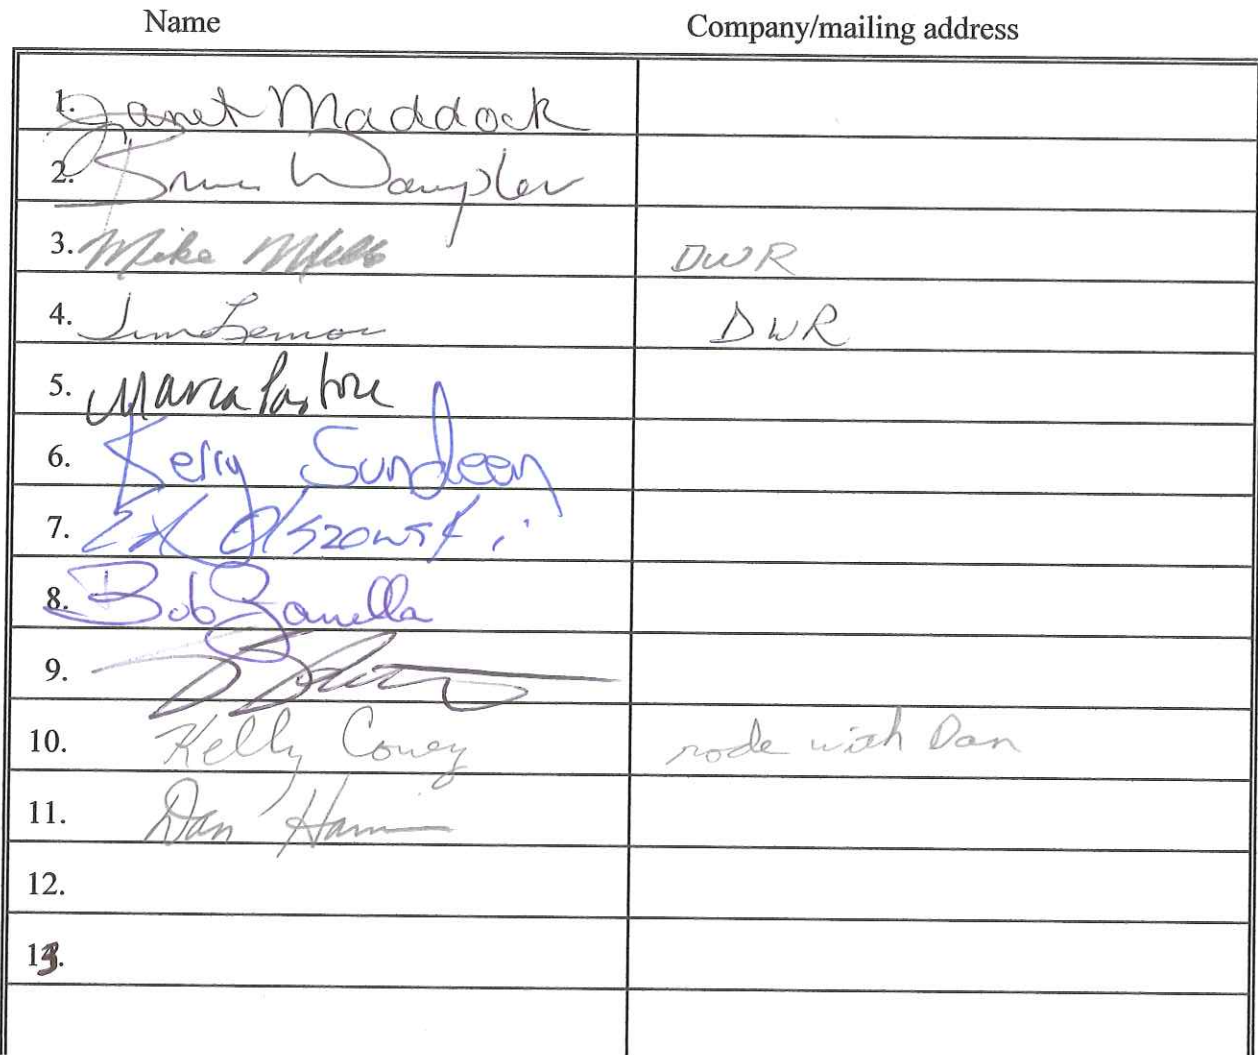 Name Company/mailing address
1. Janet Maddock
2. Bruce Wampler
3. Mike Mills DWR
4. Jim Lemon DWR
5. Maria Pastore
6. Kerry Sundeen
7. Ed Olszowski
8. Bob Zanella
9.
10. Kelly Covey rode with Dan
11. Dan
12.
13.